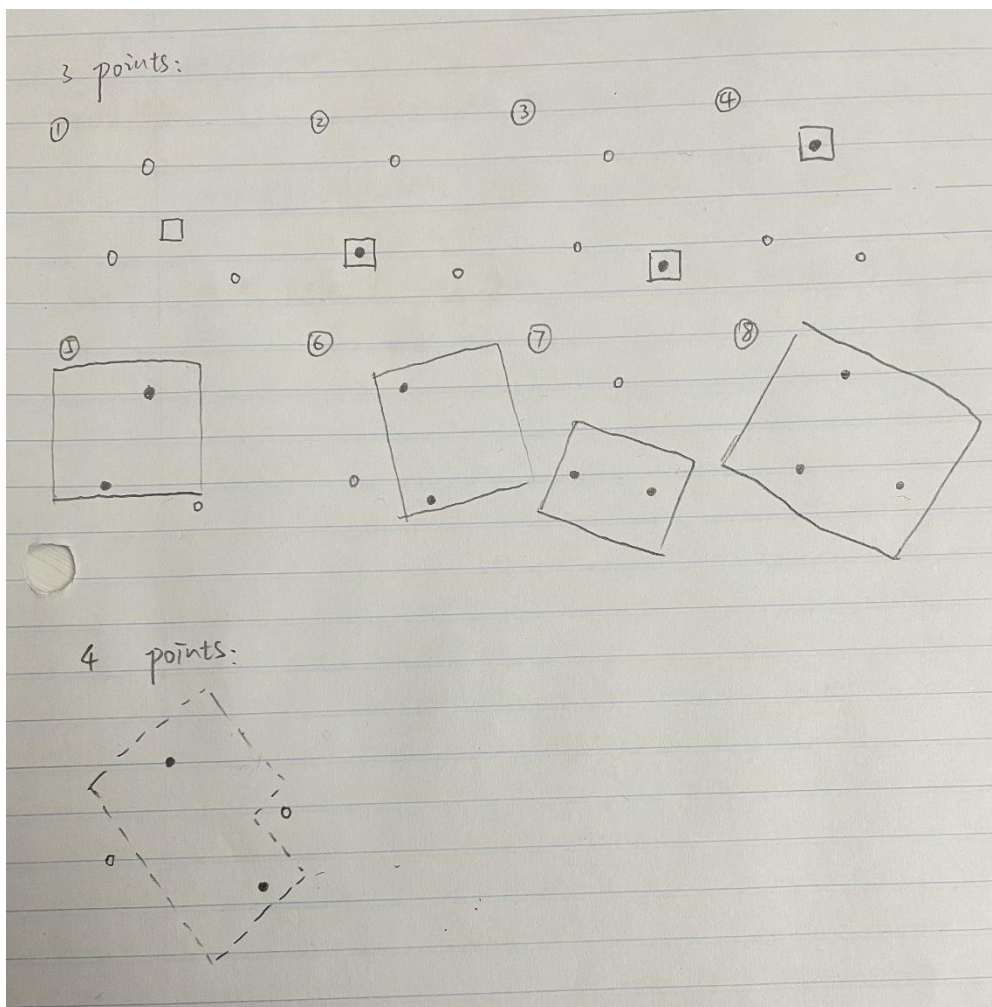 3 points:
① ② ③ ④
⑤ ⑥ ⑦ ⑧
4 points: